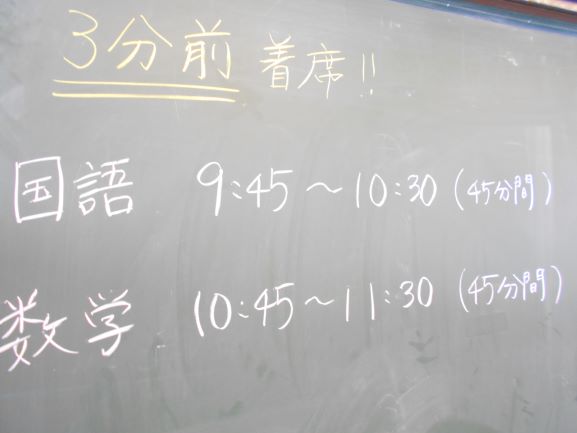 3分前 着席!!
国語 9:45〜10:30 (45分間)
数学 10:45〜11:30 (45分間)